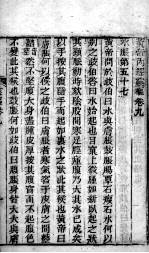 黃帝內經靈樞卷九
水脹第五十七
黃帝問於歧伯曰水與膚脹鼓脹腸覃石瘕石水何
以別之歧伯答曰水始起也目窠上微腫如新臥起之
狀其頸脈動時欬陰股間寒足脛瘇腹乃大其水已成矣
以手按其腹隨手而起如裹水之狀此其候也黃帝曰
膚脹何以候之歧伯曰膚脹者寒氣客於皮膚之間
然不堅腹大身盡腫皮厚按其腹窅而不起腹色
不變此其候也鼓脹何如歧伯曰腹脹身皆大大與膚